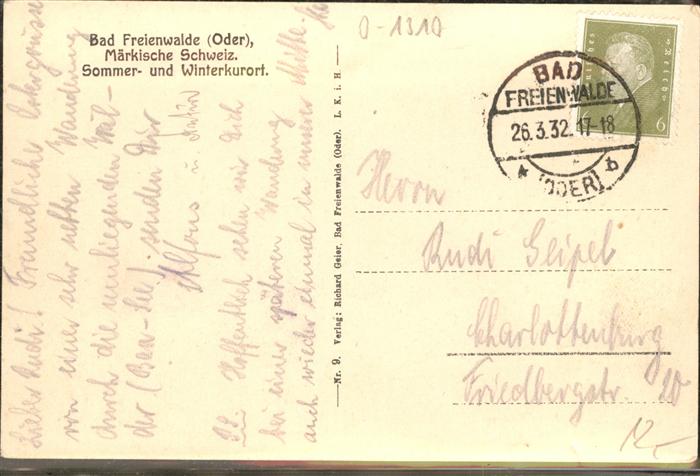 Bad Freienwalde (Oder),
Märkische Schweiz.
Sommer- und Winterkurort.
0-1310
BAD
FREIENWALDE
26.3.32. 17-18
* (ODER) b
6
Lieber Rudi! Freundliche Ostergrüsse
von einer sehr netten Wanderung
durch die umliegenden Wäl-
der (Baa-See) senden Dir
Alfons u.
P.S. Hoffentlich sehen wir Dich
bei einer späteren Wanderung
auch wieder einmal in unserer Mitte.
Nr. 9. Verlag: Richard Geier, Bad Freienwalde (Oder). L. K. i. H.
Herrn
Rudi Geipel
Charlottenburg
Friedbergstr. 10
12,-